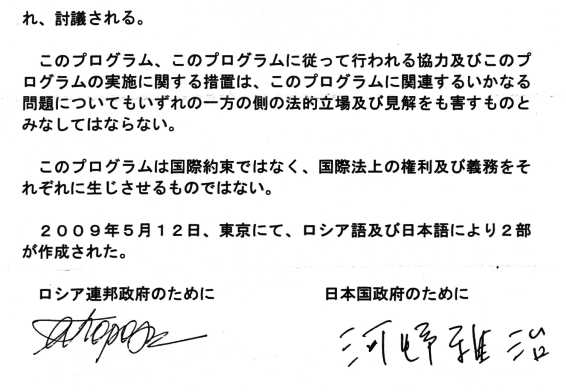 れ、討議される。
このプログラム、このプログラムに従って行われる協力及びこのプ
ログラムの実施に関する措置は、このプログラムに関連するいかなる
問題についてもいずれの一方の側の法的立場及び見解をも害するものと
みなしてはならない。
このプログラムは国際約束ではなく、国際法上の権利及び義務をそ
れぞれに生じさせるものではない。
２００９年５月１２日、東京にて、ロシア語及び日本語により２部
が作成された。
ロシア連邦政府のために 日本国政府のために
河野雅治